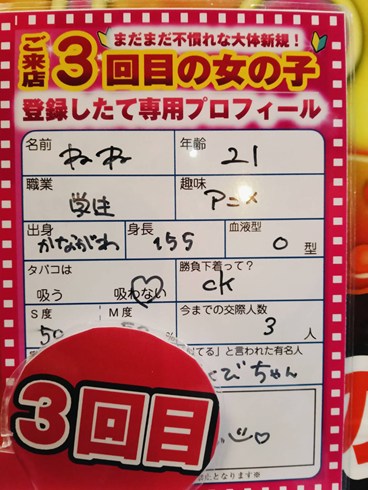 まだまだ不慣れな大体新規！
ご来店3回目の女の子
登録したて専用プロフィール
名前 ねね 年齢 21
職業 学生 趣味 アニメ
出身 かながわ 身長 155 血液型 O 型
タバコは 吸う 吸わない 勝負下着って？ CK
S度 50 M度 今までの交際人数 3 人
てる」と言われた有名人
びちゃん
3回目
となります※